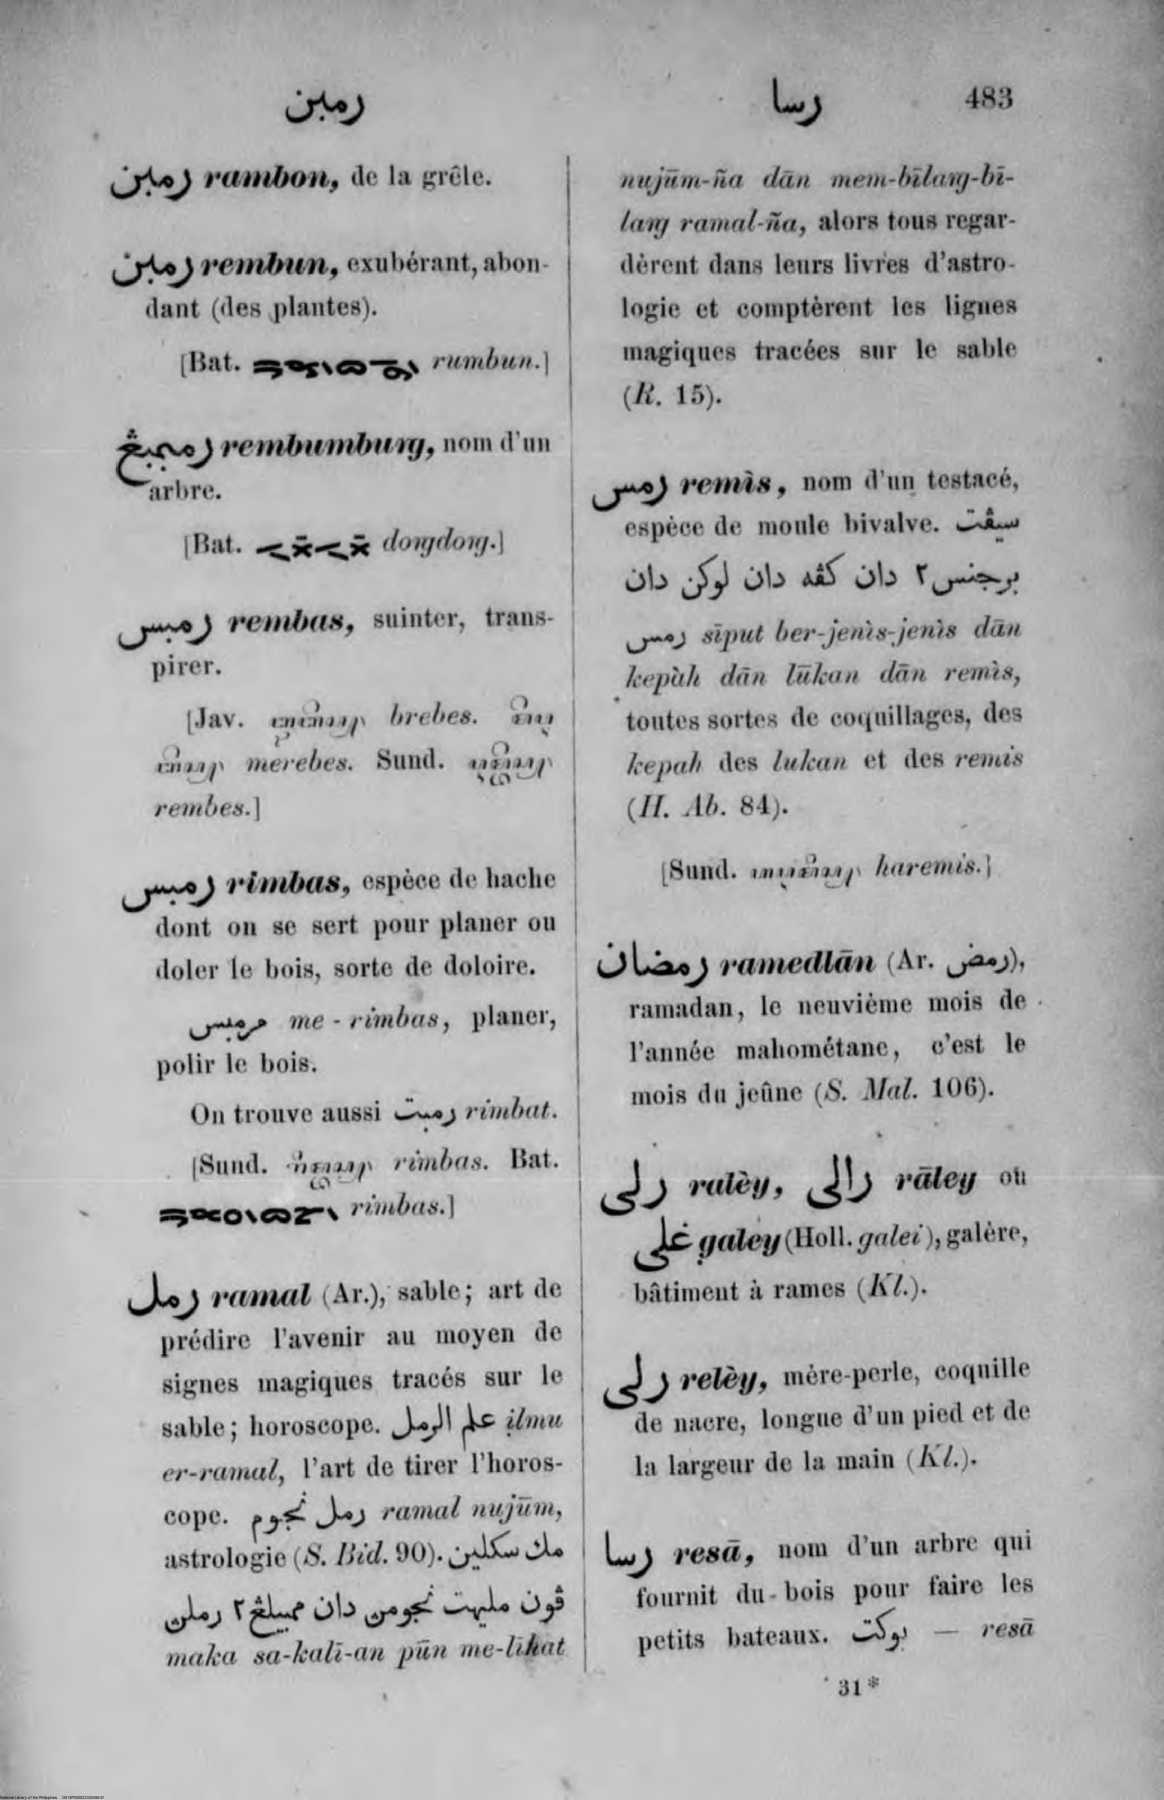 رمبن
رسا
483
رمبن rambon, de la grêle.
رمبن rembun, exubérant, abon-
dant (des plantes).
[Bat. rumbun.]
رمبمبڠ rembumbung, nom d'un
arbre.
[Bat. dongdong.]
رمبس rembas, suinter, trans-
pirer.
[Jav. brebes.
merebes. Sund.
rembes.]
رمبس rimbas, espèce de hache
dont on se sert pour planer ou
doler le bois, sorte de doloire.
مرمبس me-rimbas, planer,
polir le bois.
On trouve aussi رمبت rimbat.
[Sund. rimbas. Bat.
rimbas.]
رمل ramal (Ar.), sable; art de
prédire l'avenir au moyen de
signes magiques tracés sur le
sable; horoscope. علم الرمل ilmu
er-ramal, l'art de tirer l'horos-
cope. رمل نجوم ramal nujūm,
astrologie (S. Bid. 90). مك سكلين
ڤون مليهت نجومن دان ممبيلڠ٢ رملن
maka sa-kalī-an pūn me-līhat
nujūm-ña dān mem-bīlang-bī-
lang ramal-ña, alors tous regar-
dèrent dans leurs livres d'astro-
logie et comptèrent les lignes
magiques tracées sur le sable
(R. 15).
رمس remìs, nom d'un testacé,
espèce de moule bivalve. سيڤت
برجنس٢ دان كڤه دان لوكن دان
رمس sīput ber-jenìs-jenìs dān
kepàh dān lūkan dān remìs,
toutes sortes de coquillages, des
kepah des lukan et des remis
(H. Ab. 84).
[Sund. haremis.]
رمضان ramedlān (Ar. رمض),
ramadan, le neuvième mois de
l'année mahométane, c'est le
mois du jeûne (S. Mal. 106).
رلى ralèy, رالى rāley ou
غلى galey (Holl. galei), galère,
bâtiment à rames (Kl.).
رلى relèy, mère-perle, coquille
de nacre, longue d'un pied et de
la largeur de la main (Kl.).
رسا resā, nom d'un arbre qui
fournit du bois pour faire les
petits bateaux. بوكت — resā
31*